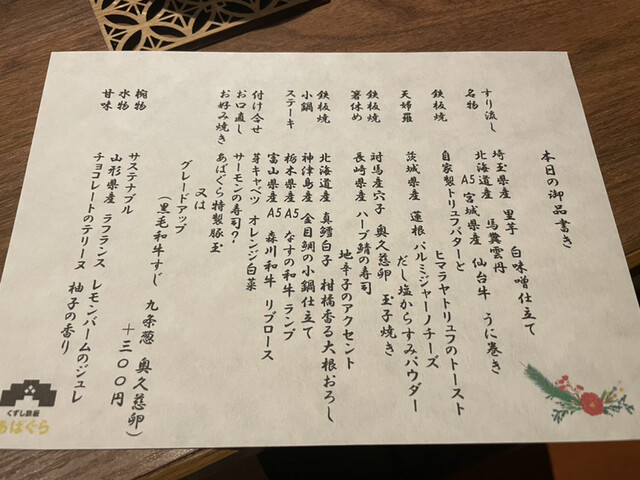 本日の御品書き
すり流し 埼玉県産 里芋 白味噌仕立て
名物 北海道産 馬糞雲丹
A5 宮城県産 仙台牛 うに巻き
鉄板焼 自家製トリュフバターと
ヒマラヤトリュフのトースト
天婦羅 茨城県産 蓮根 パルミジャーノチーズ
だし塩からすみパウダー
鉄板焼 対馬産穴子 奥久慈卵 玉子焼き
箸休め 長崎県産 ハーブ鯖の寿司
地辛子のアクセント
鉄板焼 北海道産 真鱈白子 柑橘香る大根おろし
小鍋 神津島産 金目鯛の小鍋仕立て
ステーキ 栃木県産A5 なすの和牛ランプ
富山県産A5 森川和牛 リブロース
付け合せ 芽キャベツ オレンジ白菜
お口直し サーモンの寿司？
お好み焼き あばぐら特製豚玉
又は
グレードアップ
（黒毛和牛すじ 九条葱 奥久慈卵）
＋三００円
椀物 サステナブル
水物 山形県産 ラフランス レモンバームのジュレ
甘味 チョコレートのテリーヌ 柚子の香り
くずし鉄板
あばぐら